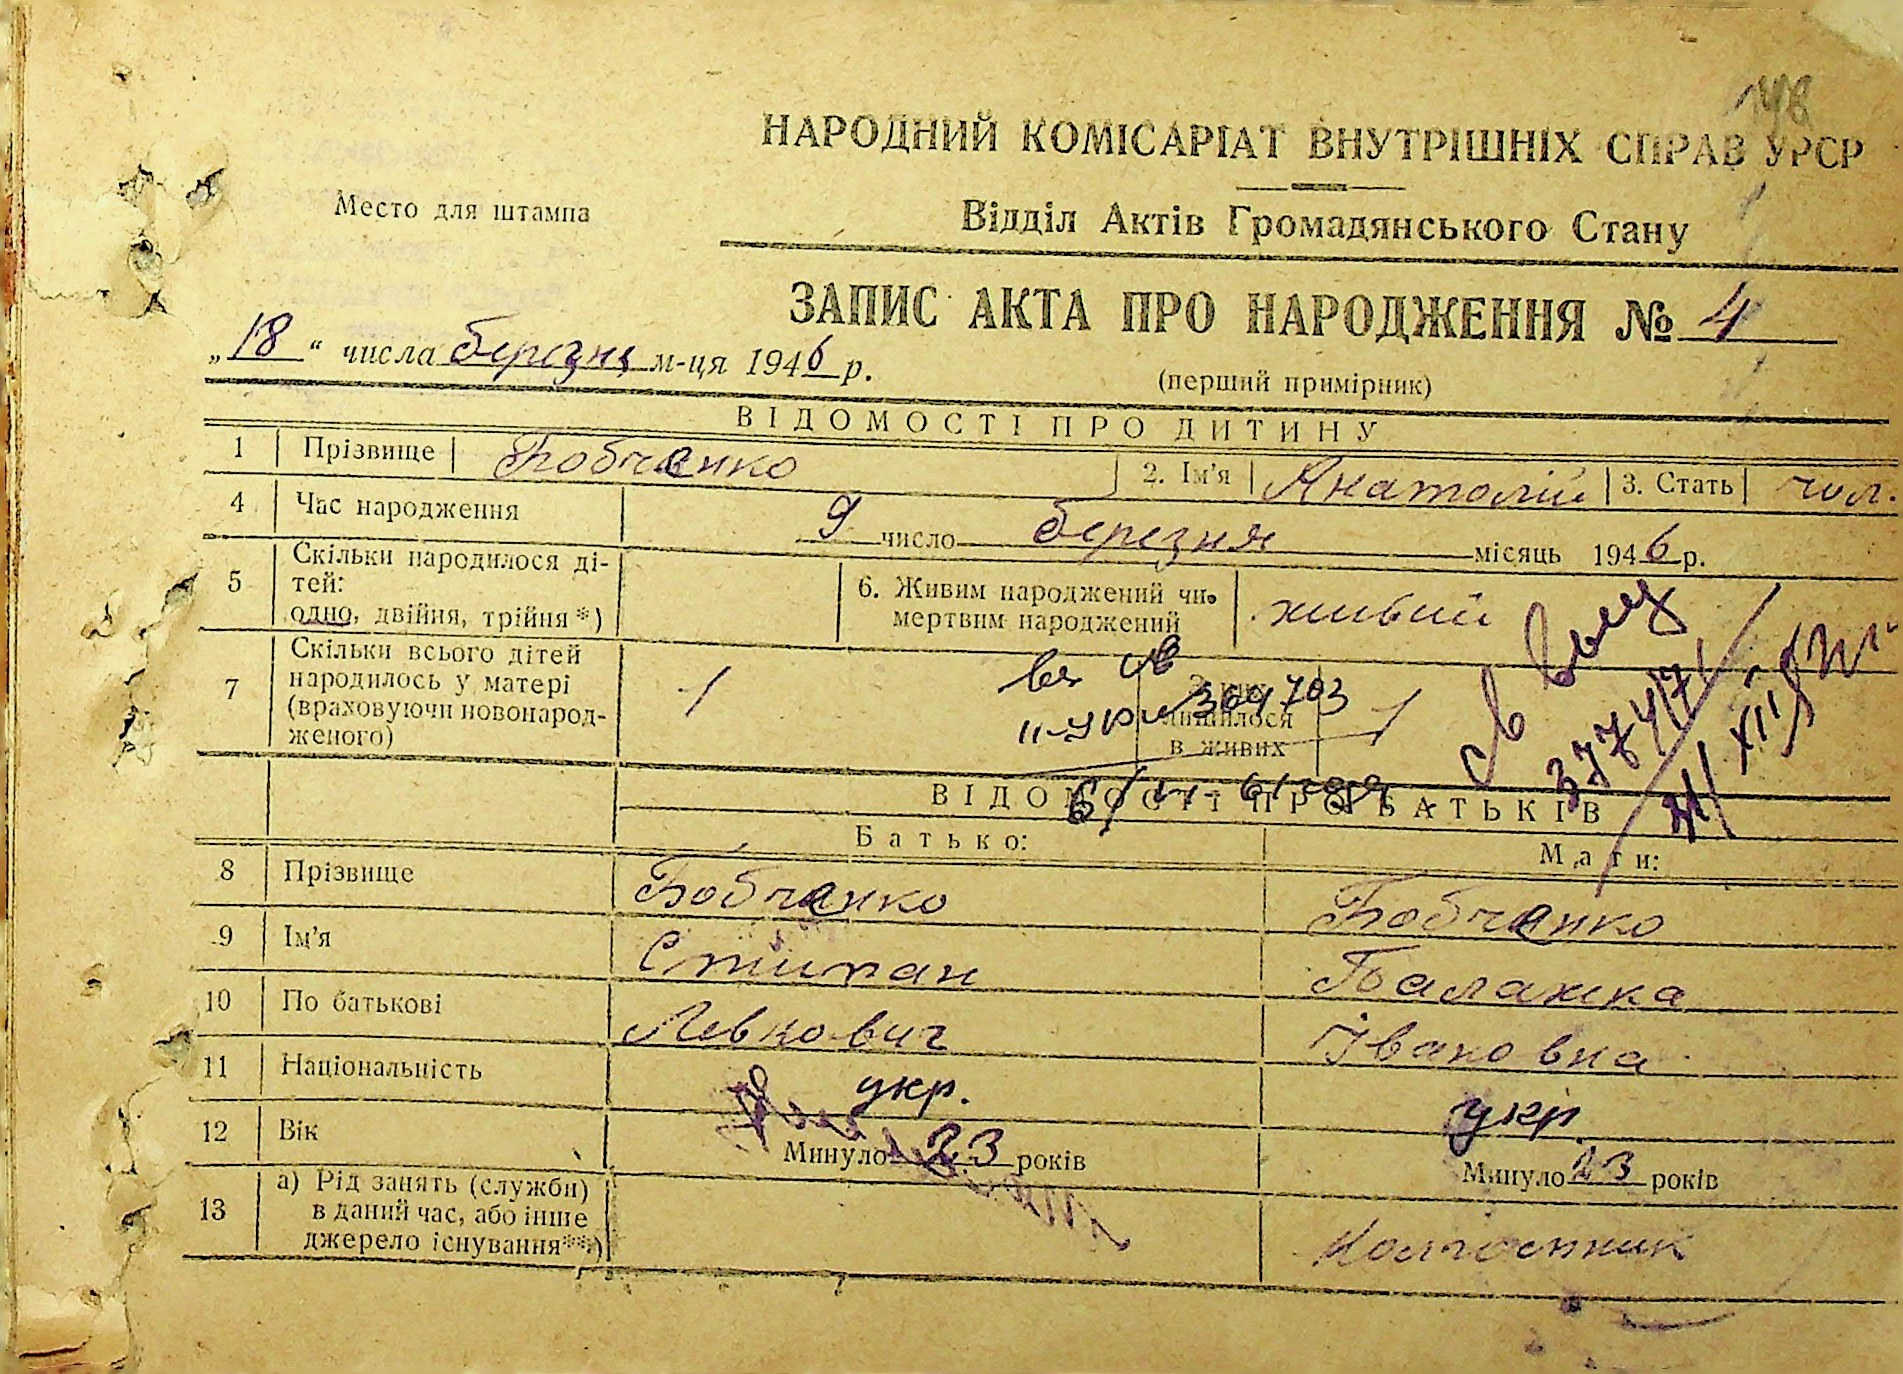 148
НАРОДНИЙ КОМІСАРІАТ ВНУТРІШНІХ СПРАВ УРСР
Место для штампа
Відділ Актів Громадянського Стану
ЗАПИС АКТА ПРО НАРОДЖЕННЯ № 4
„18“ числа березня м-ця 1946 р.
(перший примірник)
ВІДОМОСТІ ПРО ДИТИНУ
1 Прізвище Бобченко 2. Ім'я Анатолій 3. Стать чол.
4 Час народження 9 число березня місяць 1946 р.
5 Скільки народилося ді-
тей:
одно, двійня, трійня *)
6. Живим народжений чи
мертвим народжений живий
7 Скільки всього дітей
народилось у матері
(враховуючи новонарод-
женого) 1
З них
лишилося
в живих 1
ІІ-УР № 364703
37747
ВІДОМОСТІ ПРО БАТЬКІВ
Батько: Мати:
8 Прізвище Бобченко Бобченко
9 Ім'я Степан Балажка
10 По батькові Левкович Івановна
11 Національність укр. укр.
12 Вік Минуло 23 років Минуло 23 років
13 а) Рід занять (служби)
в даний час, або інше
джерело існування**) Колгоспник